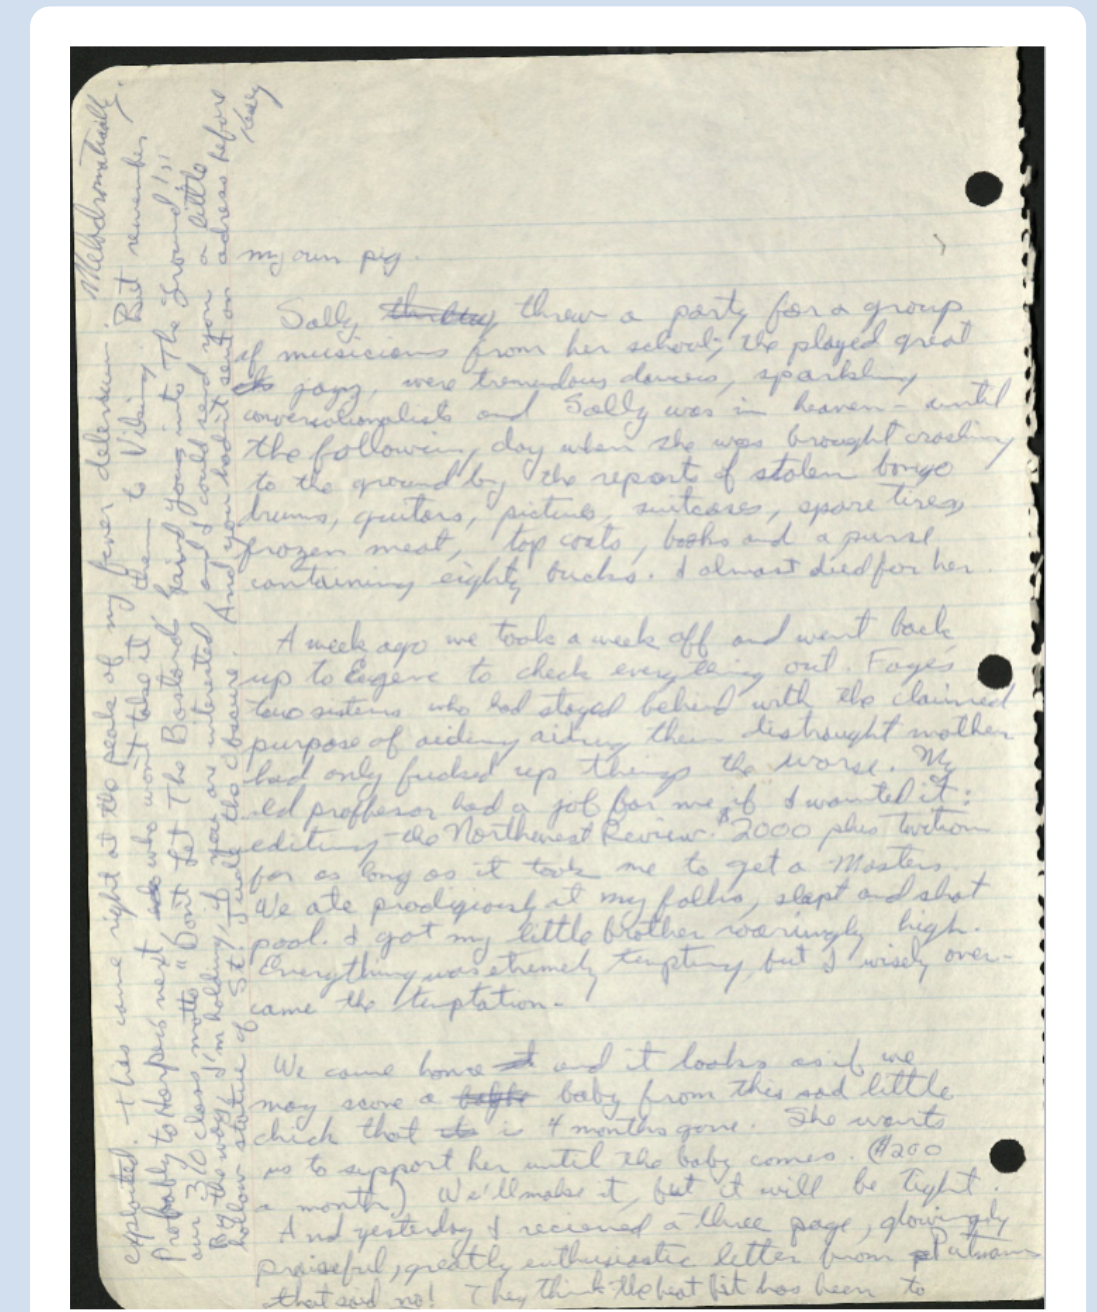 my own pig.
Sally threw a party for a group
of musicians from her school; the played great
jazz, were tremendous dancers, sparkling
conversationalists and Sally was in heaven – until
the following day when she was brought crashing
to the ground by the report of stolen bongo
drums, guitars, pictures, suitcases, spare tires,
frozen meat, top coats, books and a purse
containing eighty bucks. I almost died for her.
A week ago we took a week off and went back
up to Eugene to check everything out. Faye's
two sisters who had stayed behind with the claimed
purpose of aiding their distraught mother
had only fucked up things the worse. My
old proffesor had a job for me if I wanted it:
editing the Northwest Review. $2000 plus tuition
for as long as it took me to get a Masters.
We ate prodigiously at my folks, slept and shot
pool. I got my little brother roaringly high.
Everything was etremely tempting, but I wisely over-
came the temptation.
We came home and it looks as if we
may score a baby from this sad little
chick that is 4 months gone. She wants
us to support her until the baby comes. ($200
a month) We'll make it, but it will be tight.
And yesterday I recieved a three page, glowingly
praiseful, greatly enthusiastic letter from Putnams
that said no! They think the beat bit has been to
exploited. This came right at the peak of my fever delerium. Melodramatically
Probably to Harpers next, who won't take it then to Viking. But remember
our 310 class motto "Don't Let The Bastards Grind You into The Ground!"
By the way, I'm holding, if you are interested and I could send you a little
hollow statue of St. Jude the Obscure. And your hadit sent on adress before
Kesey